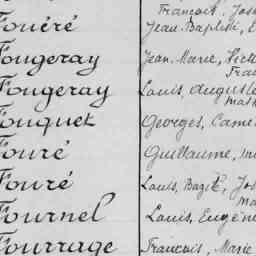 François, Jos
Fouéré Jean-Baptiste, E
Fougeray Jean Marie, Vict
Fran
Fougeray Louis, Auguste
Fouquet Georges, Came
Fouré Guillaume,
Fouré Louis, Bazile, Jos
Ma
Fournel Louis, Eugène
Fourrage François, Marie